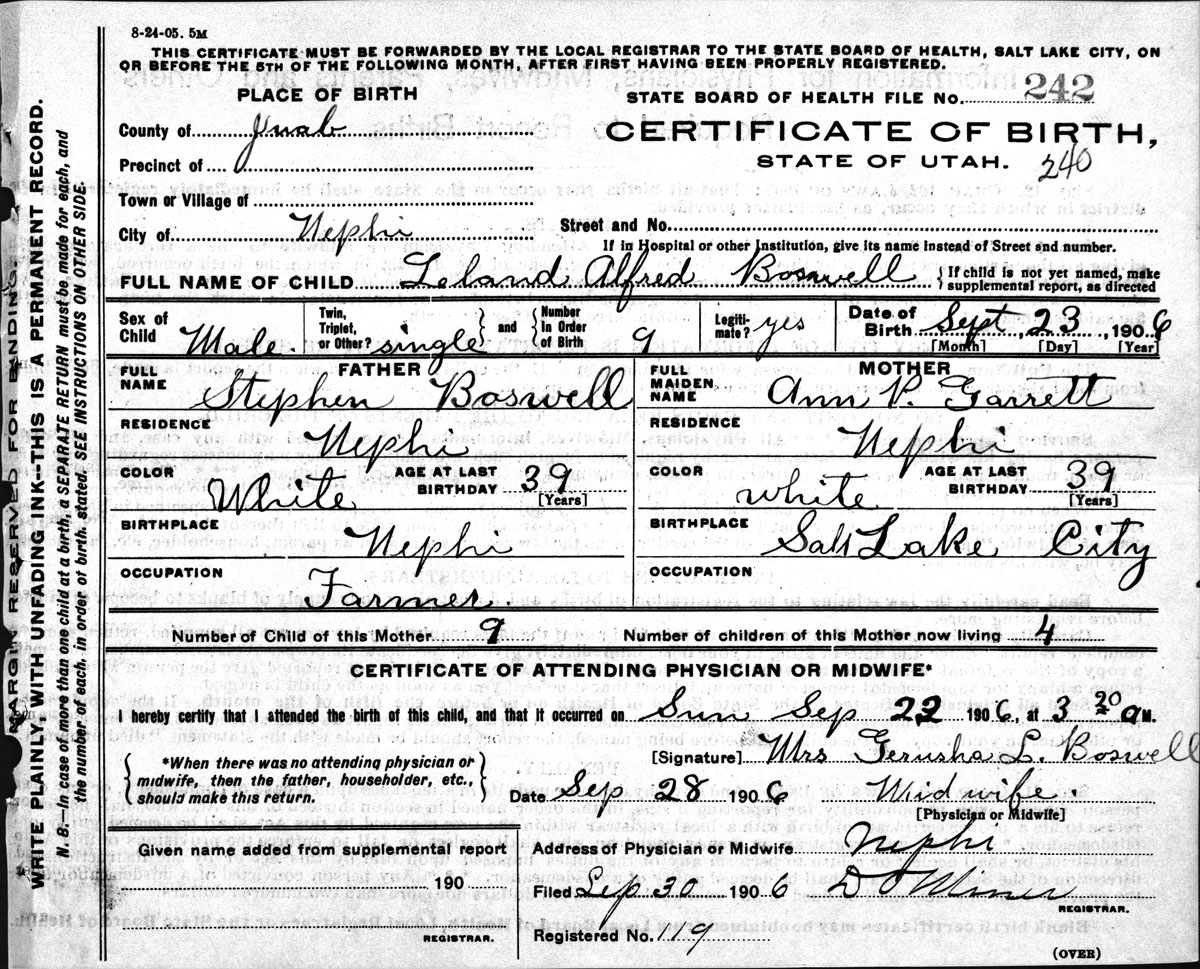 8-24-05. 5M
THIS CERTIFICATE MUST BE FORWARDED BY THE LOCAL REGISTRAR TO THE STATE BOARD OF HEALTH, SALT LAKE CITY, ON
OR BEFORE THE 5TH OF THE FOLLOWING MONTH, AFTER FIRST HAVING BEEN PROPERLY REGISTERED.
PLACE OF BIRTH
STATE BOARD OF HEALTH FILE No. 242
County of Juab
CERTIFICATE OF BIRTH,
Precinct of
STATE OF UTAH. 240
Town or Village of
City of Nephi Street and No.
If in Hospital or other Institution, give its name instead of Street and number.
FULL NAME OF CHILD Leland Alfred Boswell { If child is not yet named, make
supplemental report, as directed
Sex of Child Male.
Twin, Triplet, or Other? single } and { Number In Order of Birth 9
Legitimate? yes
Date of Birth Sept 23, 1906
[Month] [Day] [Year]
FATHER
FULL NAME Stephen Boswell
MOTHER
FULL MAIDEN NAME Ann P. Garrett
RESIDENCE Nephi
RESIDENCE Nephi
COLOR White AGE AT LAST BIRTHDAY 39 [Years]
COLOR white AGE AT LAST BIRTHDAY 39 [Years]
BIRTHPLACE Nephi
BIRTHPLACE Salt Lake City
OCCUPATION Farmer.
OCCUPATION
Number of Child of this Mother 9 Number of children of this Mother now living 4
CERTIFICATE OF ATTENDING PHYSICIAN OR MIDWIFE*
I hereby certify that I attended the birth of this child, and that it occurred on Sun Sep 22 1906, at 3 20 a M.
{ *When there was no attending physician or
midwife, then the father, householder, etc.,
should make this return. }
[Signature] Mrs Gerusha L. Boswell
Date Sep 28 1906 Midwife.
[Physician or Midwife]
Given name added from supplemental report
190
REGISTRAR.
Address of Physician or Midwife Nephi
Filed Sep 30 1906 D O Miner
REGISTRAR.
Registered No. 119
(OVER)
MARGIN RESERVED FOR BINDING
WRITE PLAINLY WITH UNFADING INK--THIS IS A PERMANENT RECORD.
N. B.—In case of more than one child at a birth, a SEPARATE RETURN must be made for each, and
the number of each, in order of birth, stated. SEE INSTRUCTIONS ON OTHER SIDE.